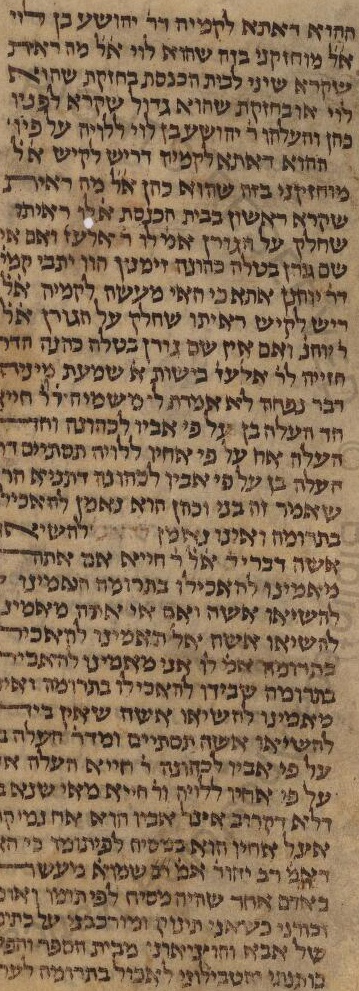 ההוא דאתא לקמיה דר׳ יהושע בן לוי
אל מוחזקני בזה שהוא לוי אל מה ראית
שקרא שיני לבית הכנסת בחזקת שהוא
לוי או בחזקת שהוא גדול שקרא לפניו
כהן והעלהו ר׳ יהושע בן לוי ללויה על פיו
ההוא דאתא לקמיה דריש לקיש אל
מוחזקני בזה שהוא כהן אל מה ראית
שקרא ראשון בבית הכנסת אל ראיתו
שחלק על הגורן אמ לו ר׳ אלעז ואם אין
שם גורן בטלה כהונה זימנין הוו יתבי קמי
דר יוחנן אתא כי האי מעשה לקמיה אל
ריש לקיש ראיתו שחלק על הגורן אל
ר יוחנ ואם אין שם גורן בטלה כהנה הדר
חזייה לר אלעז בישות א שמעת מיניה
דבר נפחה ולא אמרת לי משמיה ר׳ חייא
חד העלה בן על פי אביו לכהונה וחד
העלה אח על פי אחיו ללויה תסתיים דר
העלה בן על פי אביו לכהונה דתניא הרי
שאמר זה בני וכהן הוא נאמן להאכילו
בתרומה ואינו נאמן להשיאו
אשה דברי ר׳ אל ר חייא אם אתה
מאמינו להאכילו בתרומה תאמינו
להשיאו אשה ואם אי אתה מאמינו
להשיאו אשה אל תאמינו להאכילו
בתרומה אמ לו אני מאמינו להאכילו
בתרומה שבידו להאכילו בתרומה ואין
מאמינו להשיאו אשה שאין בידו
להשיאו אשה תסתיים ומדר העלה בן
על פי אביו לכהונה ר׳ חייא העלה אח
על פי אחיו ללויה ור חייא מאי שנא בן
דלא דקרוב אינו אביו הוא אח נמי קרוב
אינל אחיו הוא במסיח לפיתומו כי הא
דאמ רב יהוד אמ רב שמוא מעשה
באדם אחד שהיה מסיח לפיתומו ואומ
זכורני כשאני תינוק ומורכבני על כתיפו
של אבא והוציאוני מבית הספר והפשיטוני
כותנתי והטבילוני לאכול בתרומה לערב